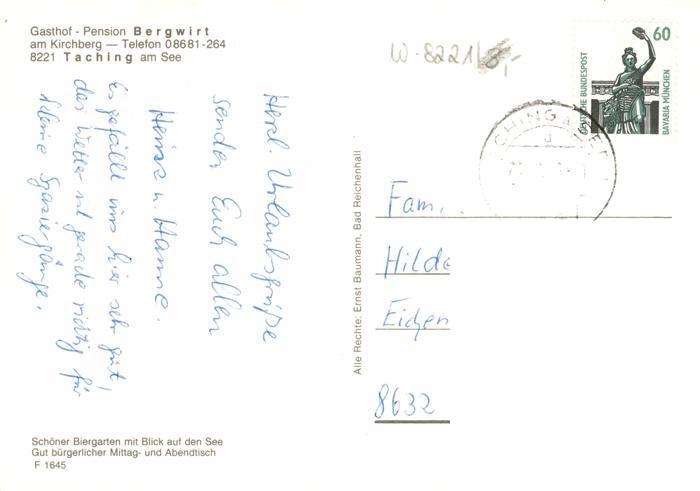 Gasthof - Pension Bergwirt
am Kirchberg — Telefon 08681-264
8221 Taching am See
W-8221/
60
DEUTSCHE BUNDESPOST
BAVARIA MÜNCHEN
CHING A
Herzl. Urlaubsgrüße
senden Euch allen
Heinz u. Hanne.
Es gefällt uns hier sehr gut,
das Wetter ist gerade richtig für
kleine Spaziergänge.
Alle Rechte: Ernst Baumann, Bad Reichenhall
Fam.
Hilde
Eichen
8632
Schöner Biergarten mit Blick auf den See
Gut bürgerlicher Mittag- und Abendtisch
F 1645